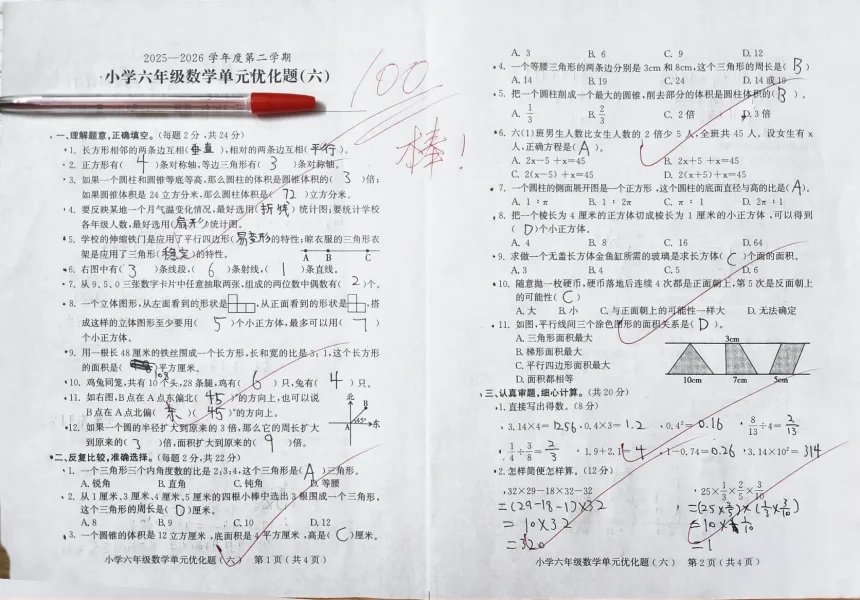 2025—2026 学年度第二学期
小学六年级数学单元优化题(六)
100
棒!
一、理解题意,正确填空。(每题2分,共24分)
1. 长方形相邻的两条边互相(垂直),相对的两条边互相(平行)。
2. 正方形有( 4 )条对称轴,等边三角形有( 3 )条对称轴。
3. 如果一个圆柱和圆锥等底等高,那么圆柱的体积是圆锥体积的( 3 )倍;
如果圆锥体积是 24 立方分米,那么圆柱体积是( 72 )立方分米。
4. 要反映某地一个月气温变化情况,最好选用(折线)统计图;要统计学校
各年级人数,最好选用(扇形)统计图。
5. 学校的伸缩铁门是应用了平行四边形(易变形)的特性;晾衣服的三角形衣
架是应用了三角形(稳定)的特性。
A B C
6. 右图中有( 3 )条线段,( 6 )条射线,( 1 )条直线。
7. 从 9、5、0 三张数字卡片中任意抽取两张,组成的两位数中偶数有( 2 )个。
8. 一个立体图形,从左面看到的形状是 ,从正面看到的形状是 ,搭
成这样的立体图形至少要用( 5 )个小正方体,最多可以用( 7 )
个小正方体。
9. 用一根长 48 厘米的铁丝围成一个长方形,长和宽的比是 3:1,这个长方形
的面积是( 108 )平方厘米。
10. 鸡兔同笼,共有 10 个头,28 条腿,鸡有( 6 )只,兔有( 4 )只。
11. 如右图,B点在A点东偏北( 45 )°的方向上,也可以说
B点在A点北偏( 东 )( 45 )°的方向上。
北 B 45° A 东
12. 如果一个圆的半径扩大到原来的 3 倍,那么它的周长扩大
到原来的( 3 )倍,面积扩大到原来的( 9 )倍。
二、反复比较,准确选择。(每题2分,共22分)
1. 一个三角形三个内角度数的比是 2:3:4,这个三角形是( A )三角形。
A. 锐角 B. 直角 C. 钝角 D. 等腰
2. 从 1 厘米、3 厘米、4 厘米、5 厘米的四根小棒中选出 3 根围成一个三角形,
这个三角形的周长是( D )厘米。
A. 8 B. 9 C. 10 D. 12
3. 一个圆锥的体积是 12 立方厘米,底面积是 4 平方厘米,高是( C )厘米。
小学六年级数学单元优化题(六) 第1页(共4页)
A. 3 B. 6 C. 9 D. 12
4. 一个等腰三角形的两条边分别是 3cm 和 8cm,这个三角形的周长是( B )
A. 14 B. 19 C. 24 D. 14 或 19
5. 把一个圆柱削成一个最大的圆锥,削去部分的体积是圆柱体积的( B )。
A. 1/3 B. 2/3 C. 2 倍 D. 3 倍
6. 六(1)班男生人数比女生人数的 2 倍少 5 人,全班共 45 人。设女生有 x
人,正确方程是( A )。
A. 2x−5 +x=45 B. 2x+5 +x=45
C. 2(x−5) +x=45 D. 2(x+5)+x=45
7. 一个圆柱的侧面展开图是一个正方形,这个圆柱的底面直径与高的比是( A )。
A. 1:π B. 1:2π C. π:1 D. 2π:1
8. 把一个棱长为 4 厘米的正方体切成棱长为 1 厘米的小正方体,可以得到
( D )个小正方体。
A. 4 B. 8 C. 16 D. 64
9. 求做一个无盖长方体金鱼缸所需的玻璃是求长方体( C )个面的面积。
A. 3 B. 4 C. 5 D. 6
10. 随意抛一枚硬币,硬币落地后连续 4 次都是正面朝上,第 5 次是反面朝上
的可能性( C )
A. 大 B. 小 C. 与正面朝上的可能性一样大 D. 无法确定
11. 如图,平行线间三个涂色图形的面积关系是( D )。
A. 三角形面积最大
B. 梯形面积最大
C. 平行四边形面积最大
D. 面积都相等
3cm
10cm 7cm 5cm
三、认真审题,细心计算。(共20分)
1. 直接写出得数。(8分)
3.14×4= 12.56 0.4×3= 1.2 0.4²= 0.16 8/13÷4= 2/13
1/4÷3/8= 2/3 1.9+2.1= 4 1−0.74= 0.26 3.14×10²= 314
2. 怎样简便怎样算。(12分)
32×29−18×32−32 25×1/3×2/5×3/10
=(29-18-1)×32 =(25×2/5)×(1/3×3/10)
=10×32 =10×1/10
=320 =1
小学六年级数学单元优化题(六) 第2页(共4页)